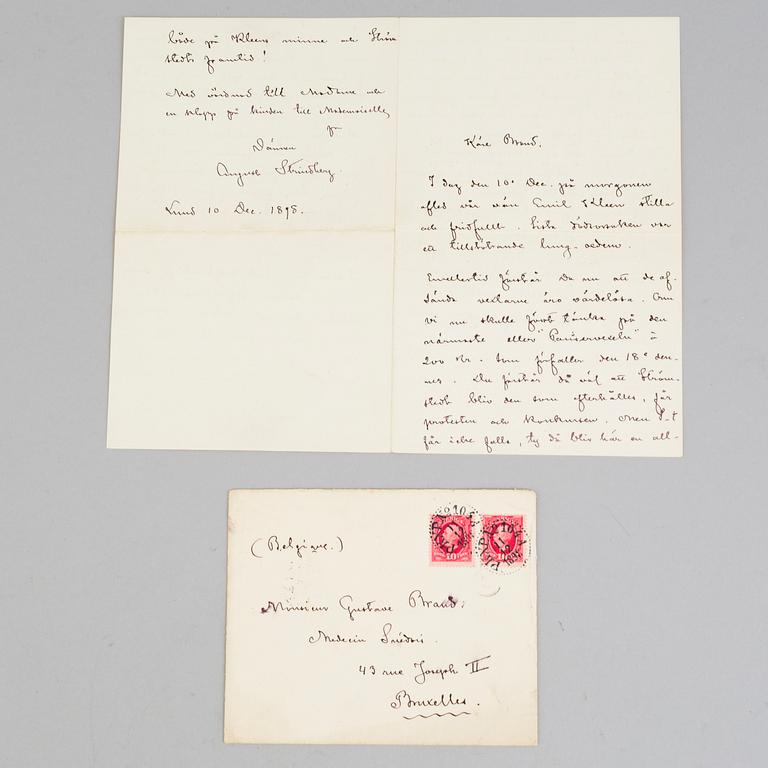 både på Kleens minne och Ström
stedts framtid!
Med vördnad till Madame och
en klapp på kinden till Mademoiselle,
fr
Vännen
August Strindberg.
Lund 10 Dec. 1898.
Käre Brand,
I dag den 10e Dec. på morgonen
afled vår vän Emil Kleen stilla
och fridfullt. Sista dödsorsaken var
ett tillstötande lung-oedem.
Emellertid förstår Du nu att de af-
sända vexlarne äro värdelösa. Om
vi nu skulle först tänka på den
närmaste eller "Pariservexeln" à
200 Kr. som förfaller den 18e den-
nes. Du förstår då väl att Ström-
stedt blir den som efterhålles, får
protesten och konkursen. Men S-t
får icke falla, ty då blir här en all-
(Belgique.)
Monsieur Gustave Brand,
Medecin Suédois.
43 rue Joseph II
Bruxelles.
PKXP
PKXP